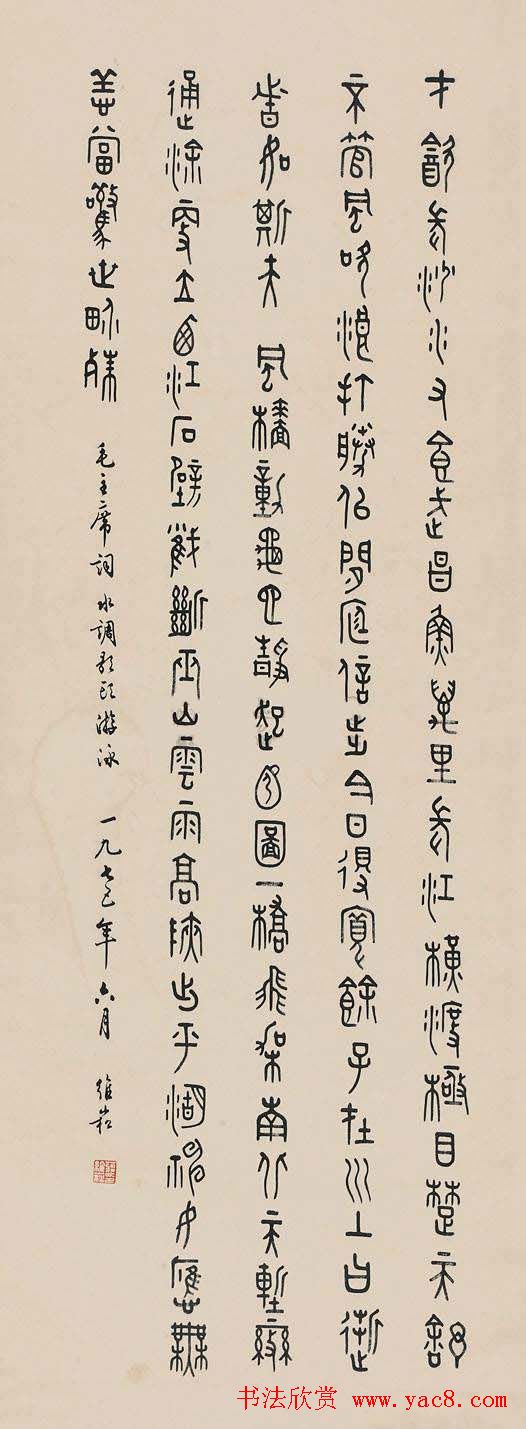 才飲長沙水又食武昌魚萬里長江橫渡極目楚天舒
不管風吹浪打勝似閒庭信步今日得寬餘子在川上曰逝
者如斯夫 風檣動龜蛇靜起宏圖一橋飛架南北天塹變
通途更立西江石壁截斷巫山雲雨高峽出平湖神女應無
恙當驚世界殊 毛主席詞 水調歌頭 游泳 一九七五年 六月 維崧
书法欣赏 www.yac8.com